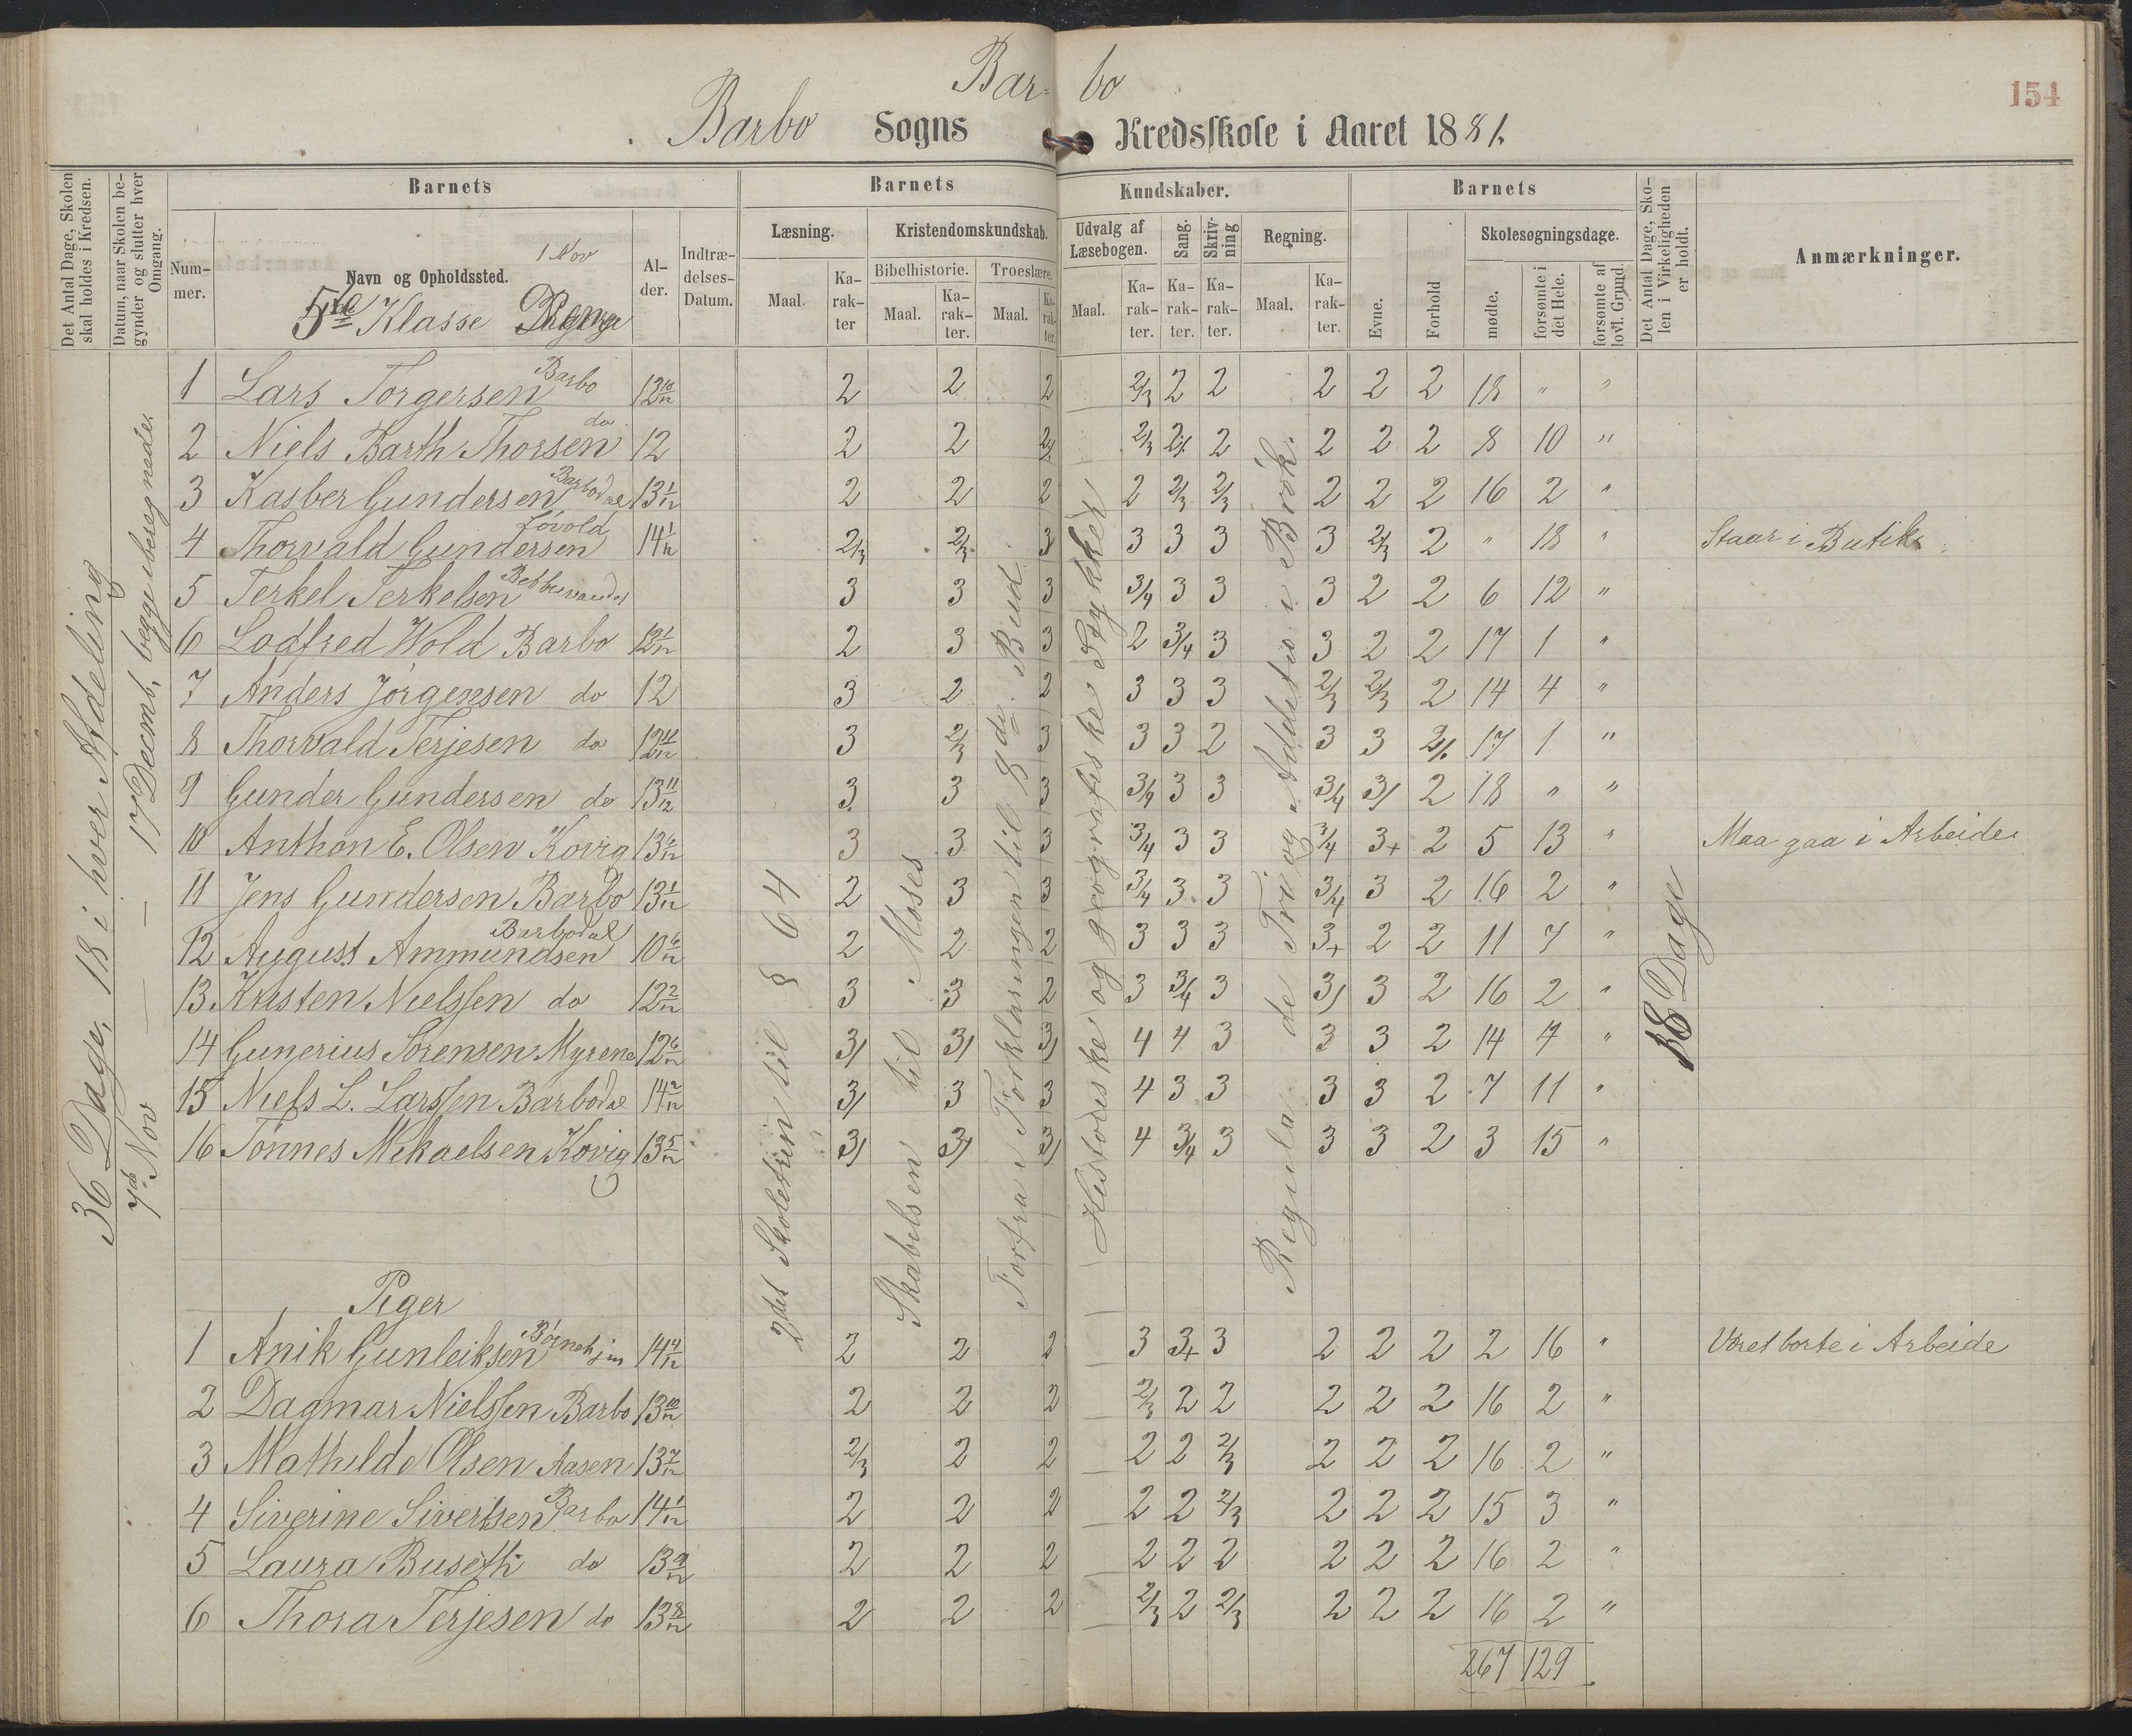 Bar- bo
154
Barbo Sogns Kredsskole i Aaret 1881.
Det Antal Dage, Skolen skal holdes i Kredsen.
Datum, naar Skolen begynder og slutter hver Omgang.
Barnets
Barnets Kundskaber.
Barnets
Det Antal Dage, Skolen i Virkeligheden er holdt.
Anmærkninger.
Nummer.
Navn og Opholdssted.
1 Nov
Alder.
Indtrædelses-Datum.
Læsning.
Kristendomskundskab.
Udvalg af Læsebogen.
Sang.
Skrivning
Regning.
Evne.
Forhold
Skolesøgningsdage.
Bibelhistorie.
Troeslære.
mødte.
forsømte i det Hele.
forsømte af lovl. Grund.
Maal. Karakter Maal. Karakter. Maal. Karakter. Maal. Karakter. Karakter. Karakter. Maal. Karakter.
5te Klasse
36 Dage, 18 i hver Afdeling
7de Nov — 17 Decemb, begge iberegnede.
2det Skoletrin til § 64
Skabelsen til Moses
Forfra i Forklaringen til 8de Bud
Historiske og geografiske Stykker
Regula de Tri og Addetio i Brøk.
18 Dage
1 Lars Torgersen Barbo 13 10/12 2 2 2 2/3 2 2 2 2 2 18 " "
2 Niels Barth Thorsen do 12 2 2 2/ 2/3 2/ 2 2 2 2 8 10 "
3 Kasber Gundersen Barbodal 13 1/12 2 2 2 2 2/3 2/3 2 2 2 16 2 "
4 Thorvald Gundersen Løvold 14 1/12 2/3 2/3 3 3 3 3 3 2/3 2 " 18 " Staar i Butik
5 Terkel Terkelsen 3 3 3 3/4 3 3 3 2 2 6 12 "
6 Lodfred Wold Barbo 12 1/12 2 3 3 2 3/4 3 3 2 2 17 1 "
7 Anders Jørgensen do 12 3 2 2 3 3 3 2/3 2/3 2 14 4 "
8 Thorvald Terjesen do 12 11/12 3 2/3 3 3 3 2 3 3 2/ 17 1 "
9 Gunder Gundersen do 13 11/12 3 3 3 3/4 3 3 3/4 3/ 2 18 " "
10 Anthon E. Olsen Kovig 13 6/12 3 3 3 3/4 3 3 3/4 3+ 2 5 13 " Maa gaa i Arbeide
11 Jens Gundersen Barbo 13 1/12 2 3 3 3/4 3 3 3/4 3 2 16 2 "
12 August Ammundsen Barbodal 10 6/12 2 2 2 3 3 3 3+ 2 2 11 7 "
13 Kristen Nielssen do 12 2/12 3 3 2 3 3/4 3 3/ 3 2 16 2 "
14 Gunerius Sørensen Myrene 12 6/12 3/ 3/ 3/ 4 4 3 3 3 2 14 4 "
15 Niels L. Larssen Barbodal 14 2/12 3/ 3 3 4 3 3 3 3 2 7 11 "
16 Tønnes Mikaelsen Kovig 13 5/12 3/ 3/ 3/ 4 3/4 3 3 3 2 3 15 "
Piger
1 Anik Gunleiksen 14 4/12 2 2 2 3 3+ 3 2 2 2 2 16 " Været borte i Arbeide
2 Dagmar Nielssen Barbo 13 10/12 2 2 2 2/3 2 2 2 2 2 16 2 "
3 Mathilde Olsen Aasen 13 7/12 2/3 2 2 2 2 2/3 2 2 2 16 2 "
4 Siverine Sivertsen Barbo 14 1/12 2 2 2 2 2 2/3 2 2 2 15 3 "
5 Laura Buseth do 13 9/12 2 2 2 2 2 2 2 2 2 16 2 "
6 Thora Terjesen do 13 8/12 2 2 2 2/3 2 2/3 2 2 2 16 2 "
267 129